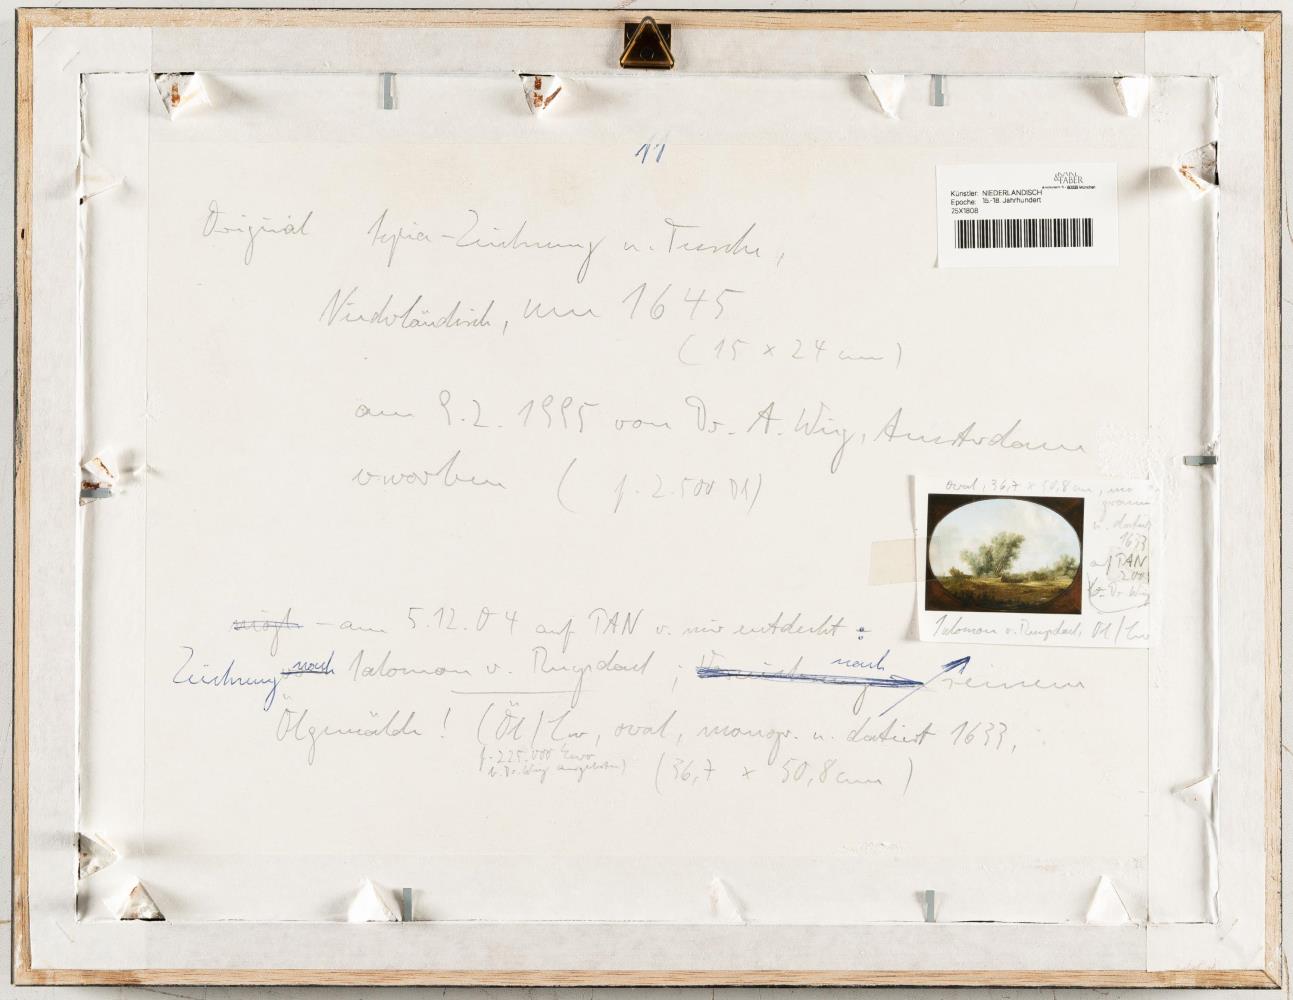 11
KARL & FABER
Künstler: NIEDERLÄNDISCH
Epoche: 15.-18. Jahrhundert
25X1808
Original Sepia-Zeichnung u. Tusche,
Niederländisch, um 1645
(15 x 24 cm)
am 9.2.1995 von Dr. A. Wig, Amsterdam
erworben (f. 2.500 Dl)
oval, 36,7 x 50,8 cm, mo
gramm
u. datiert
1633
auf TAN
Salomon v. Ruysdael, Öl/Lw
- am 5.12.04 auf TAN v. mir entdeckt:
Zeichnung nach Salomon v. Ruysdael; nach seinem
Ölgemälde! (Öl/Lw, oval, monogr. u. datiert 1633,
f. 225.000 Euro
v. Dr. Wig angeboten)
(36,7 x 50,8 cm)